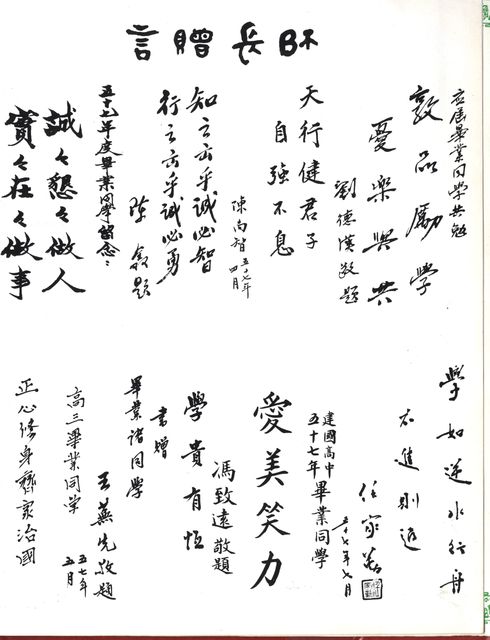 師長贈言
應屆畢業同學共勉
敦品勵學
憂樂與共
劉德漢敬題
天行健君子
自強不息
陳向智五十七年
四月
知之出乎誠必智
行之出乎誠必勇
題
五十七年度畢業同學留念:
誠々懇々做人
實々在々做事
學如逆水行舟
不進則退
任家
五十七年七月
建國高中
五十七年畢業同學
愛美笑力
馮致遠敬題
學貴有恆
書贈
畢業諸同學
王蕪先敬題
五七年
五月
高三畢業同学
正心修身齊家治國